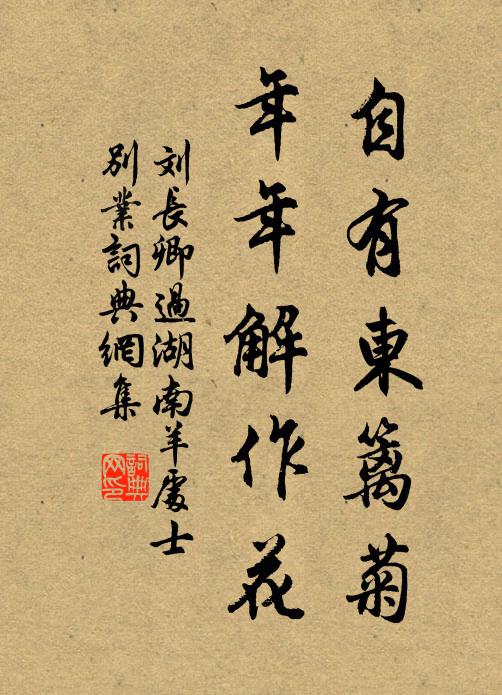 自有東籬菊
年年解作花
刘長卿過湖南羊處士
別業詞典網集
詞典
网印